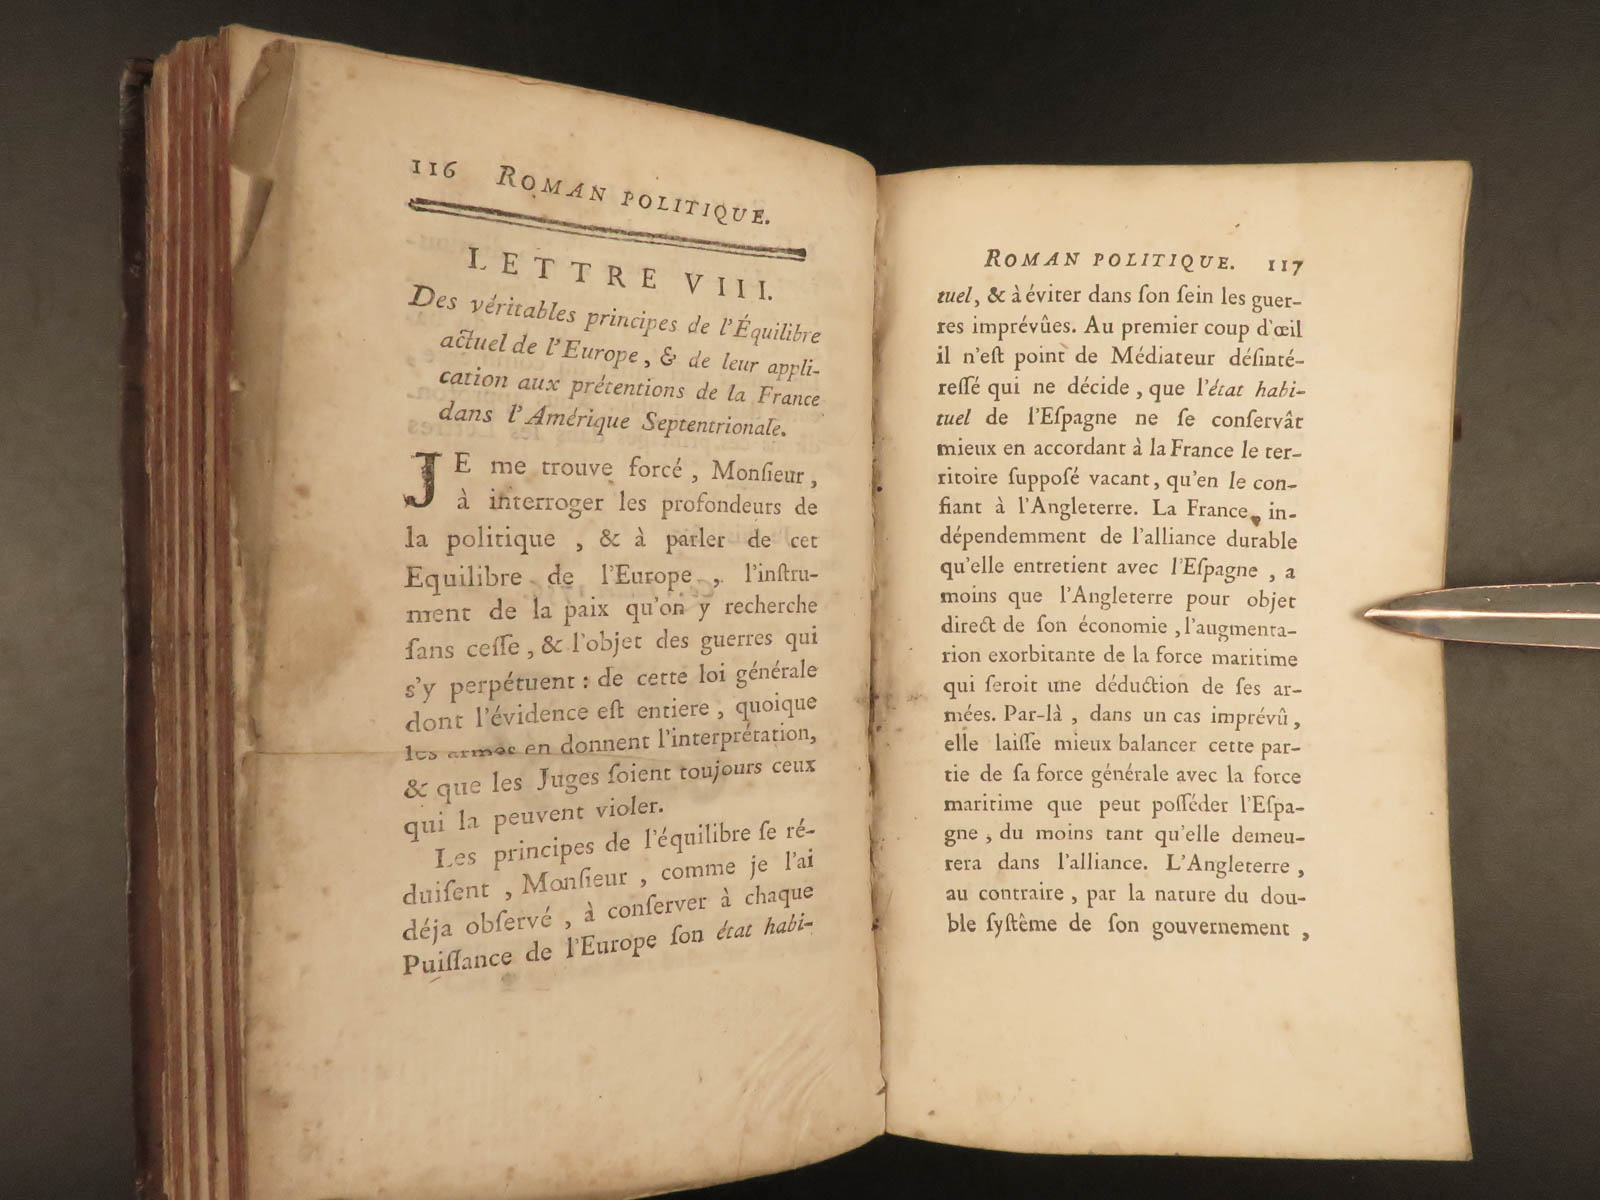 116 ROMAN POLITIQUE.
LETTRE VIII.
Des véritables principes de l'Équilibre
actuel de l'Europe, & de leur appli-
cation aux prétentions de la France
dans l'Amérique Septentrionale.
JE me trouve forcé, Monſieur,
à interroger les profondeurs de
la politique, & à parler de cet
Equilibre de l'Europe, l'inſtru-
ment de la paix qu'on y recherche
ſans ceſſe, & l'objet des guerres qui
s'y perpétuent : de cette loi générale
dont l'évidence eſt entiere, quoique
les armes en donnent l'interprétation,
& que les Juges ſoient toujours ceux
qui la peuvent violer.
Les principes de l'équilibre ſe ré-
duiſent, Monſieur, comme je l'ai
déja obſervé, à conſerver à chaque
Puiſſance de l'Europe ſon état habi-
ROMAN POLITIQUE. 117
tuel, & à éviter dans ſon ſein les guer-
res imprévûes. Au premier coup d'œil
il n'eſt point de Médiateur déſinté-
reſſé qui ne décide, que l'état habi-
tuel de l'Eſpagne ne ſe conſervât
mieux en accordant à la France le ter-
ritoire ſuppoſé vacant, qu'en le con-
fiant à l'Angleterre. La France, in-
dépendemment de l'alliance durable
qu'elle entretient avec l'Eſpagne, a
moins que l'Angleterre pour objet
direct de ſon économie, l'augmenta-
tion exorbitante de la force maritime
qui ſeroit une déduction de ſes ar-
mées. Par-là, dans un cas imprévû,
elle laiſſe mieux balancer cette par-
tie de ſa force générale avec la force
maritime que peut poſſéder l'Eſpa-
gne, du moins tant qu'elle demeu-
rera dans l'alliance. L'Angleterre,
au contraire, par la nature du dou-
ble ſyſtême de ſon gouvernement,